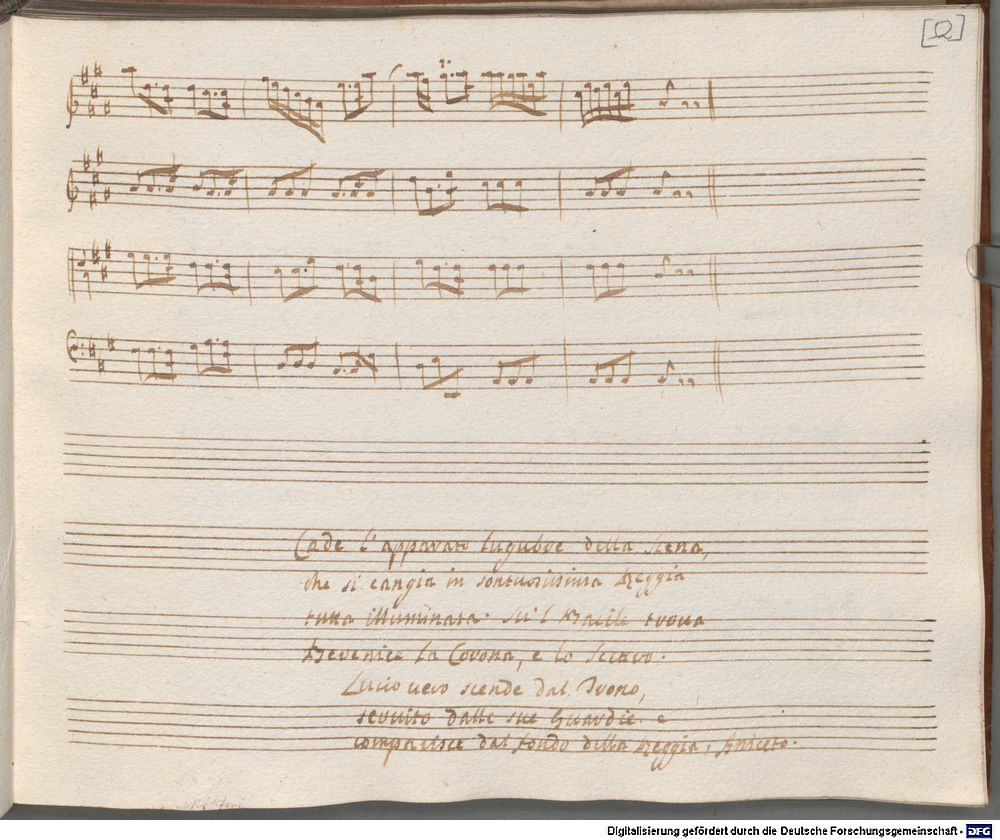 [2]
Cade l'apparato lugubre della Scena,
che si cangia in sontuosissima Reggia
tutta illuminata. Su'l Bacile trova
Berenice la Corona, e lo Scetro.
Lucio vero scende dal Trono,
servito dalle sue Guardie e
comparisce dal fondo della Reggia, Aniceto.
Digitalisierung gefördert durch die Deutsche Forschungsgemeinschaft - DFG